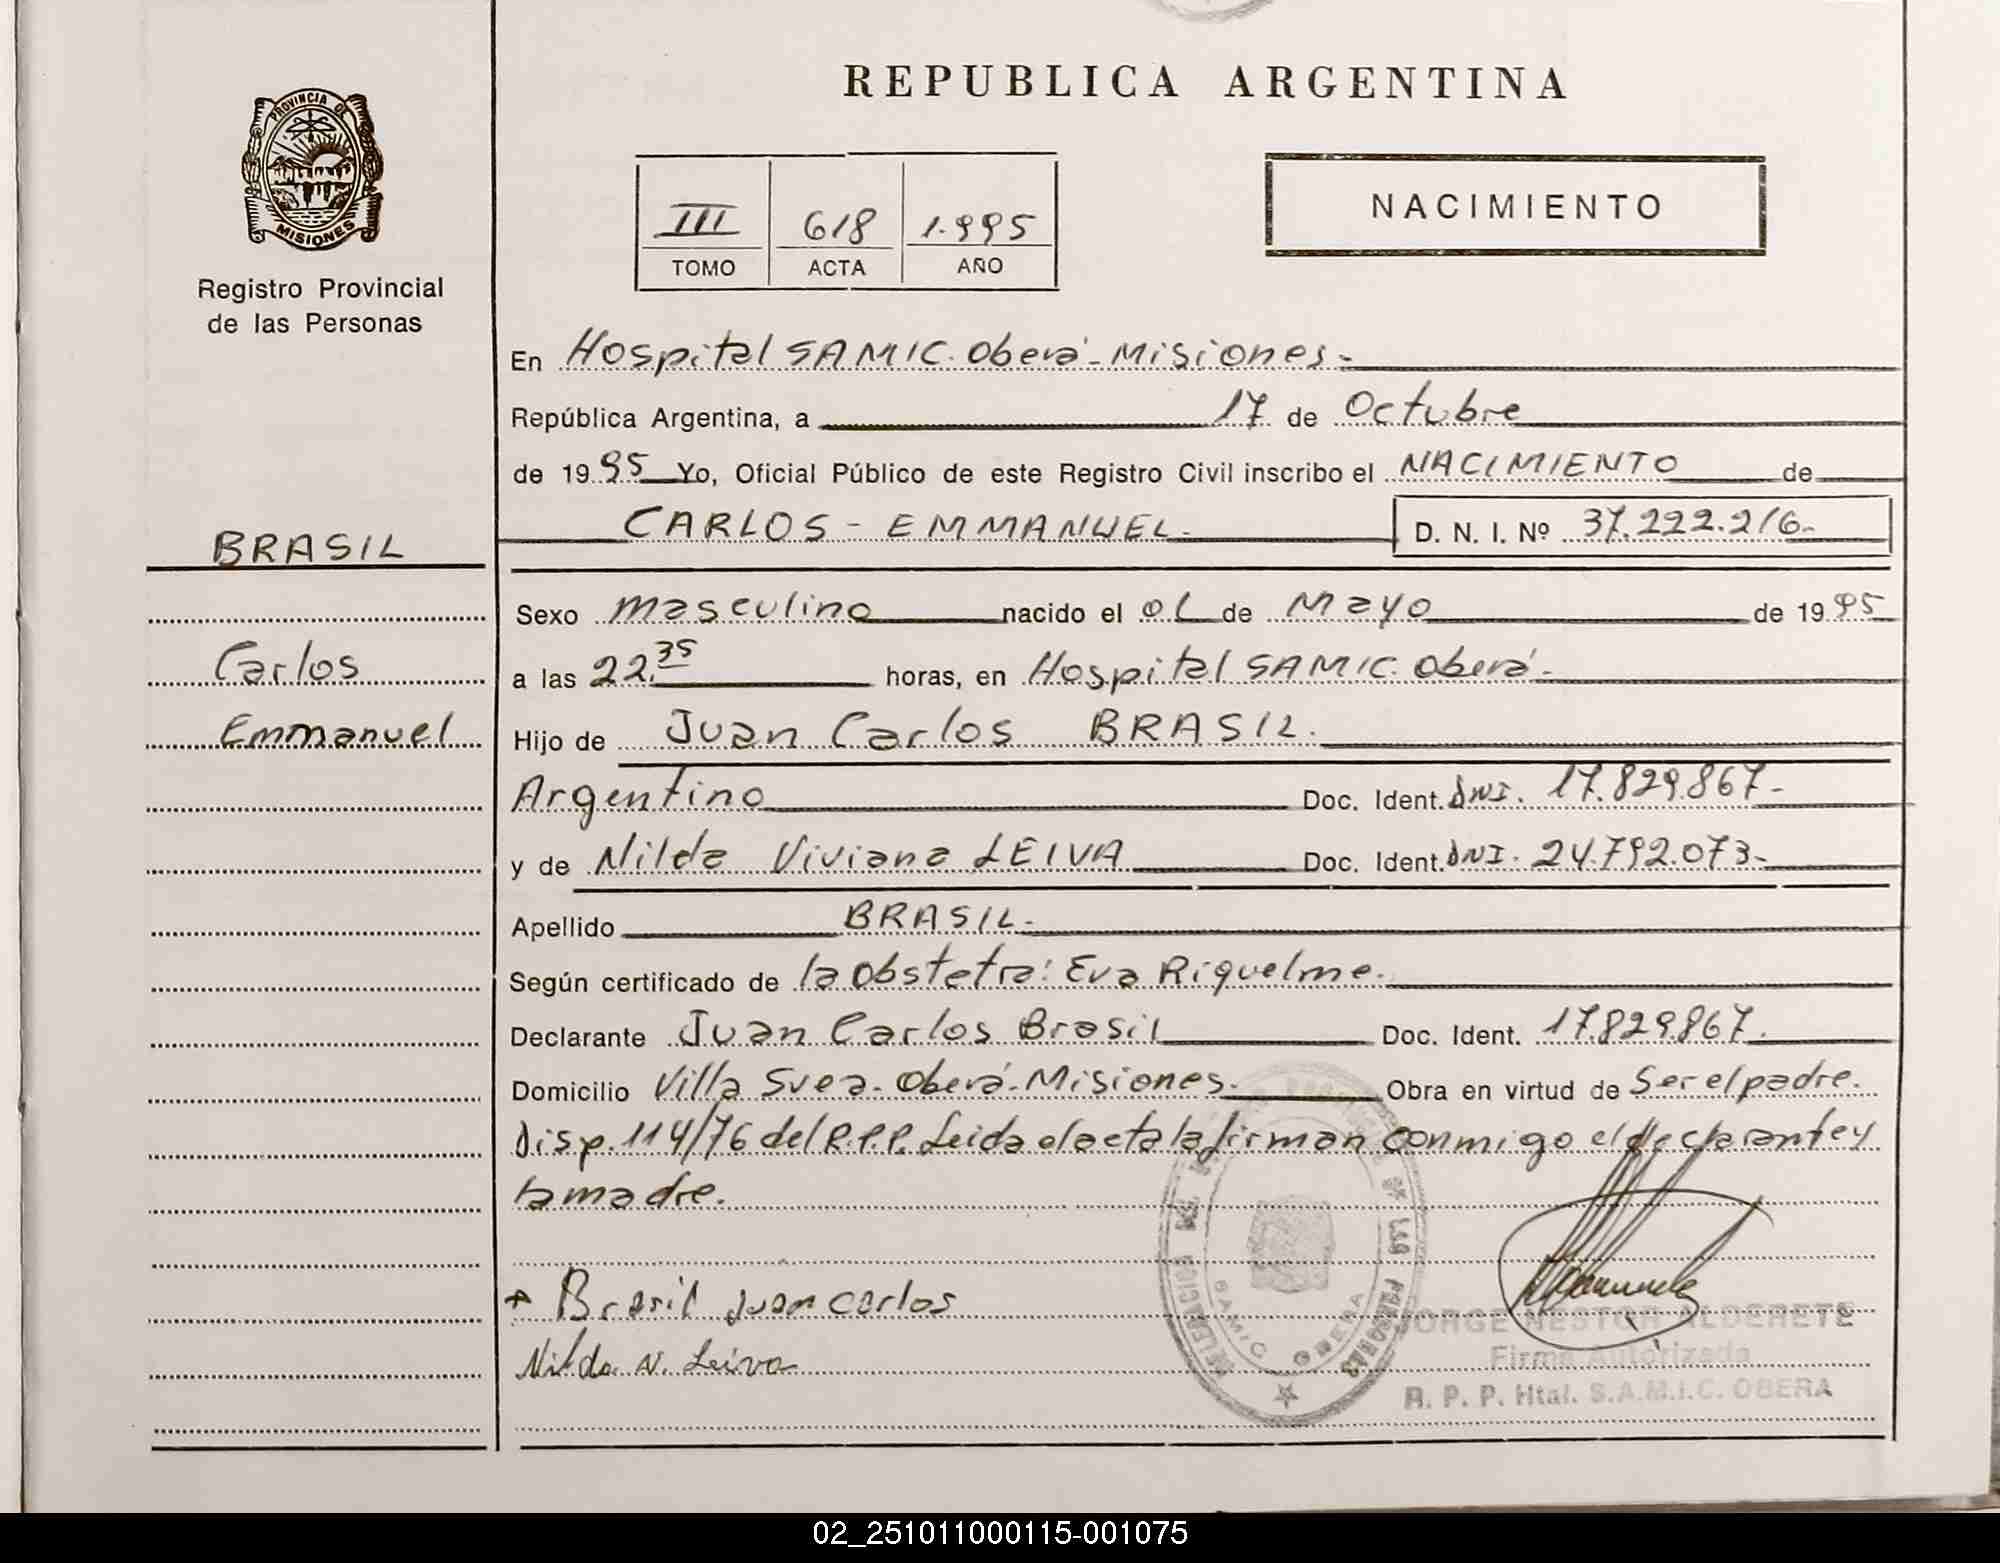 REPUBLICA ARGENTINA
PROVINCIA DE
MISIONES
Registro Provincial
de las Personas
III 618 1.995
TOMO ACTA AÑO
NACIMIENTO
En Hospital SAMIC. Oberá - Misiones.-
República Argentina, a 17 de Octubre
de 1995 Yo, Oficial Público de este Registro Civil inscribo el NACIMIENTO de
CARLOS - EMMANUEL.- D. N. I. Nº 37.222.216.-
BRASIL
Carlos
Emmanuel
Sexo masculino nacido el 01 de Mayo de 1995
a las 22.35 horas, en Hospital SAMIC. Oberá.-
Hijo de Juan Carlos BRASIL.
Argentino Doc. Ident. DNI. 17.829.867.-
y de Nilda Viviana LEIVA Doc. Ident. DNI. 24.792.073.-
Apellido BRASIL.-
Según certificado de la Obstetra: Eva Riquelme.
Declarante Juan Carlos Brasil Doc. Ident. 17.829.867.
Domicilio Villa Svea. Oberá. Misiones. Obra en virtud de Ser el padre.
Disp. 114/76 del R.P.P. Leida el acta la firman conmigo el declarante y
la madre.
Brasil Juan Carlos
Nilda V. Leiva
SAMIC OBERA
JORGE NESTOR ALDERETE
Firma Autorizada
R. P. P. Htal. S.A.M.I.C. OBERA
02_251011000115-001075